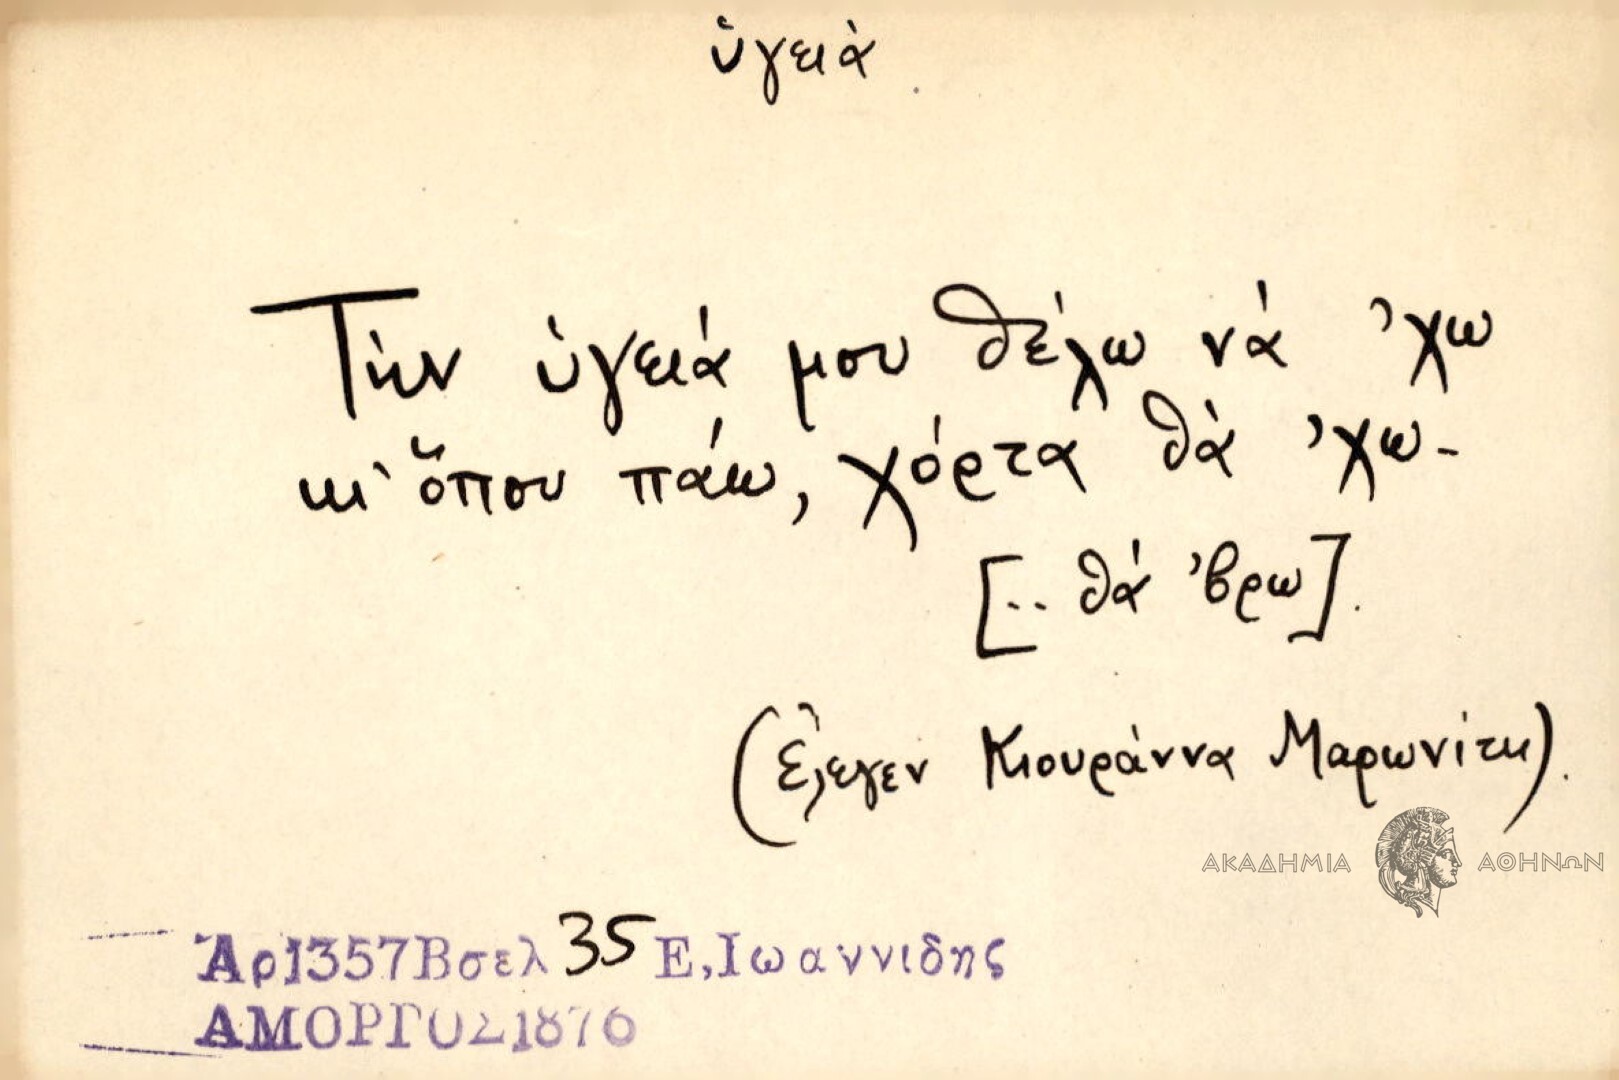 ὑγειὰ
Τὴν ὑγειά μου θέλω νά 'χω
κι' ὅπου πάω, χόρτα θὰ 'χω-
[.. θά 'βρω].
(ἔλεγεν Κιουράννα Μαρωνίτη).
ΑΚΑΔΗΜΙΑ ΑΘΗΝΩΝ
Ἀρ1357Βσελ 35 Ε,Ιωαννιδης
ΑΜΟΡΓΟΣ1876